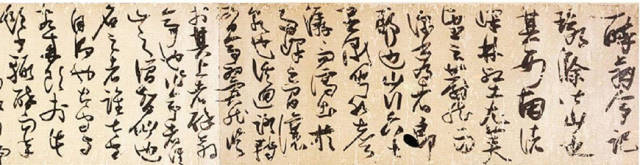 醉翁亭記
環滁皆山也
其西南諸
峰林壑尤美
望之蔚然而
深秀者瑯
琊也山行六七
里漸聞水聲
潺潺而瀉出於
兩峰之間釀
泉也峰回路轉
有亭翼然臨
於其上者醉翁
亭也作亭者誰
山之僧智仙也
名之者誰太守
自謂也太守與
客來飲於此
飲少輒醉而年